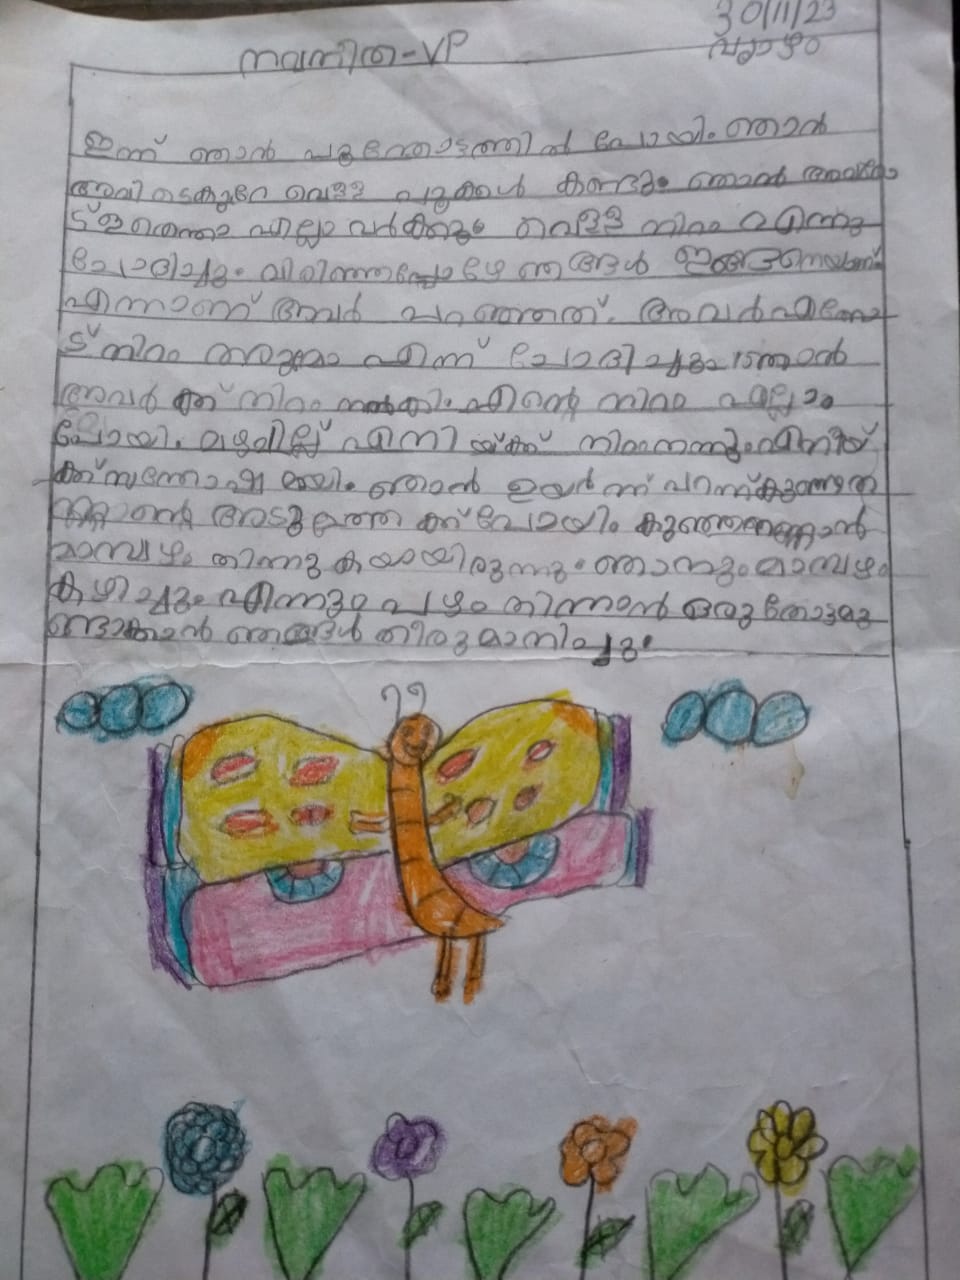 30/11/23
നവനീത-VP വ്യാഴം
ഇന്ന് ഞാൻ പൂന്തോട്ടത്തിൽ പോയി. ഞാൻ
അവിടെകുറേ വെള്ള പൂക്കൾ കണ്ടു. ഞാൻ അവരോ
ട് ഇതെന്താ എല്ലാവർക്കും വെള്ള നിറം എന്നു
ചോദിച്ചു. വിരിഞ്ഞപ്പോഴേ ഞങ്ങൾ ഇങ്ങനെയാണ്
എന്നാണ് അവർ പറഞ്ഞത്. അവർ എന്നോ
ട് നിറം തരുമോ എന്ന് ചോദിച്ചു. ഞാൻ
അവർക്ക് നിറം നൽകി. എന്റെ നിറം എല്ലാം
പോയി. മഴവില്ല് എനിയ്ക്ക് നിറംതന്നു. എനിയ്
ക്ക് സന്തോഷമായി. ഞാൻ ഉയർന്ന് പറന്ന്
അടുത്തേക്ക് പോയി.
മാമ്പഴം തിന്നുകയായിരുന്നു. ഞാനും മാമ്പഴം
കഴിച്ചു. എന്നും പഴം തിന്നാൻ ഒരു തോട്ടമു
ണ്ടാക്കാൻ ഞങ്ങൾ തീരുമാനിച്ചു.